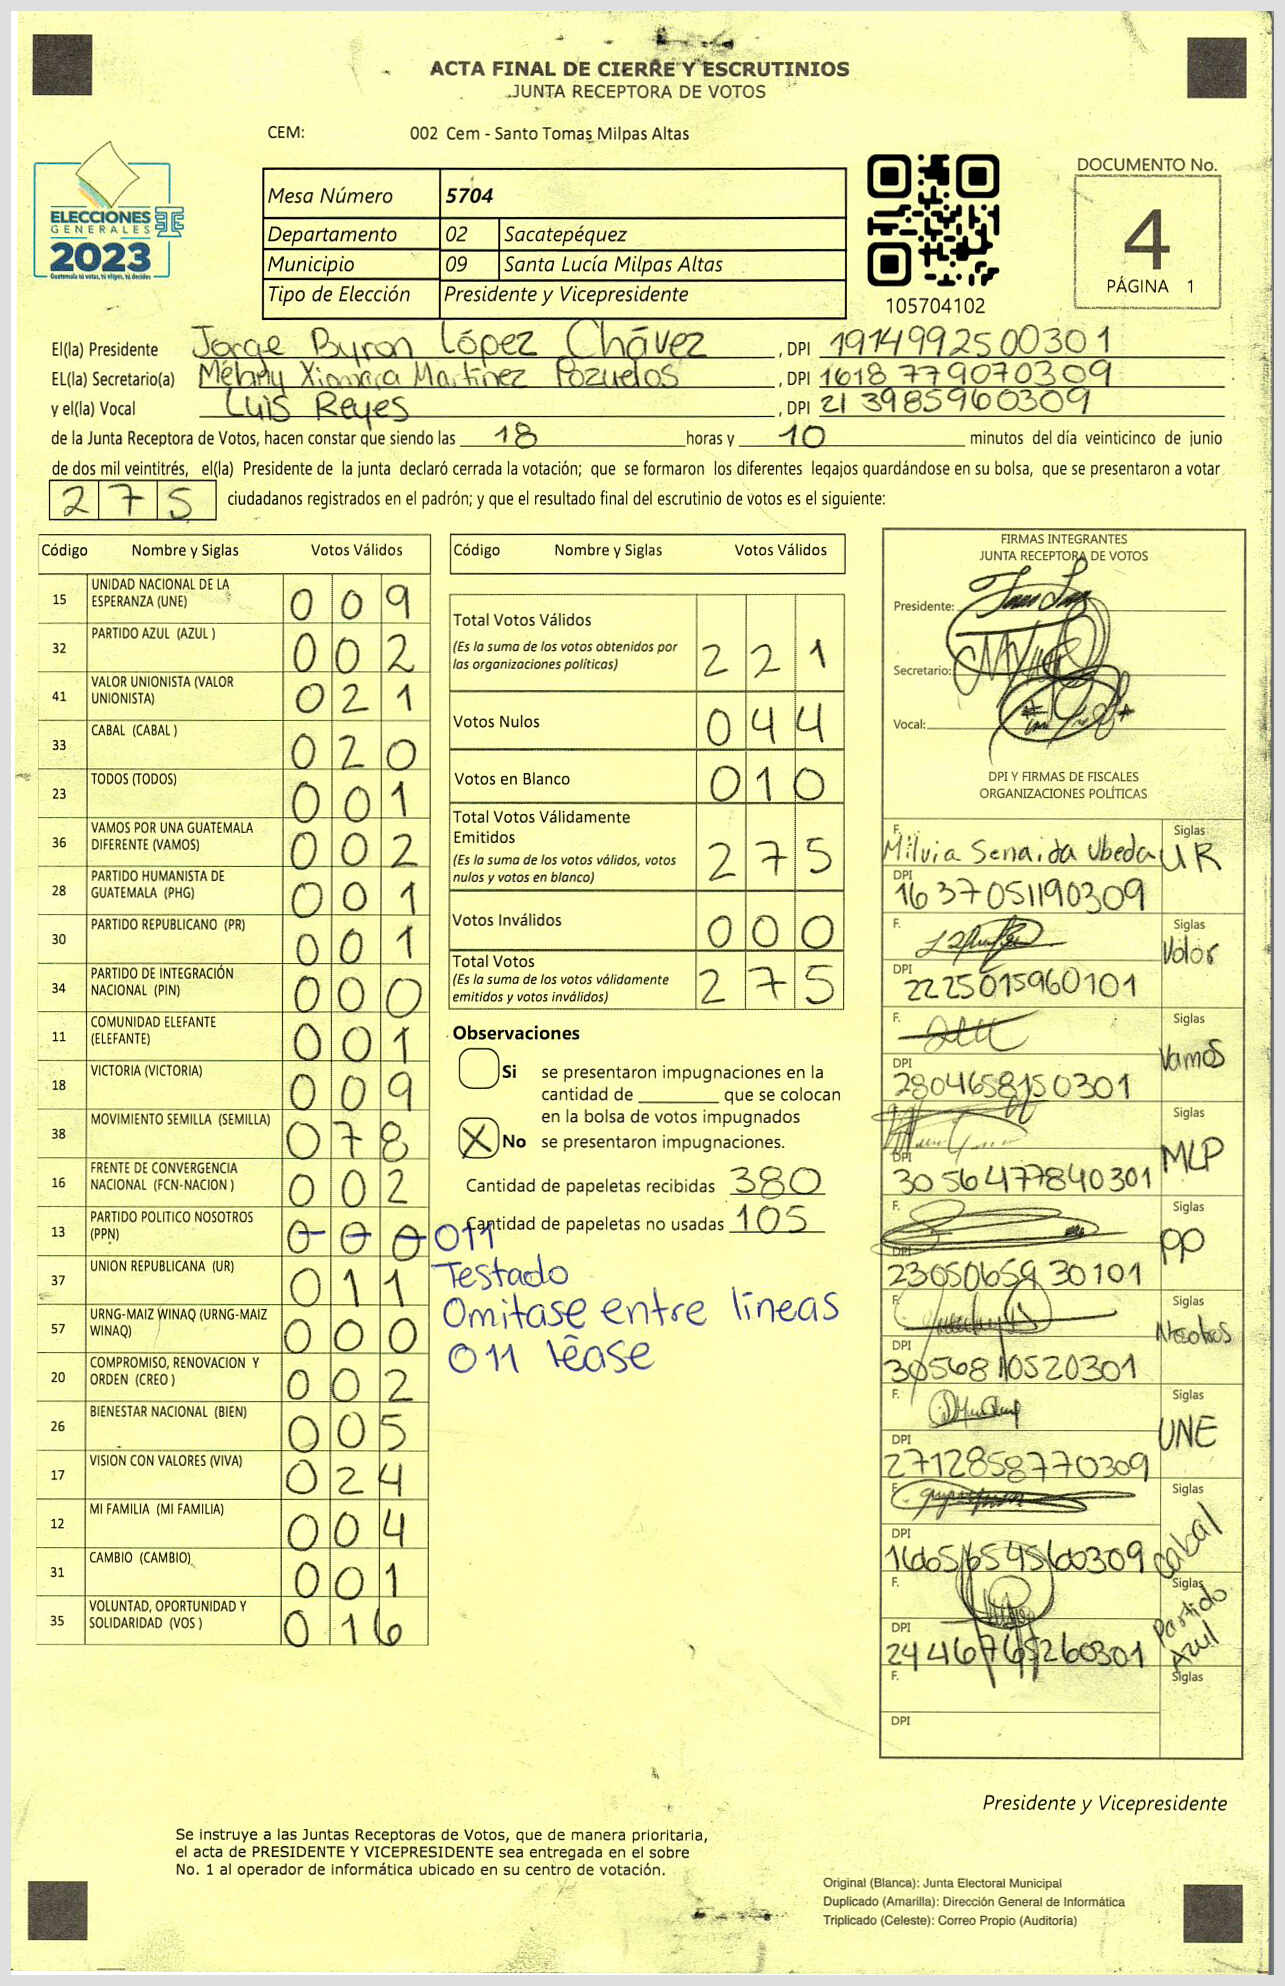 ACTA FINAL DE CIERRE Y ESCRUTINIOS
JUNTA RECEPTORA DE VOTOS
CEM: 002 Cem - Santo Tomas Milpas Altas
ELECCIONES
GENERALES
2023
Guatemala tú votas, tú eliges, tú decides
Mesa Número 5704
Departamento 02 Sacatepéquez
Municipio 09 Santa Lucía Milpas Altas
Tipo de Elección Presidente y Vicepresidente
105704102
DOCUMENTO No.
4
PÁGINA 1
El(la) Presidente Jorge Byron López Chávez , DPI 1914992500301
EL(la) Secretario(a) Xiomara Martínez Pozuelos , DPI 1618 779070309
y el(la) Vocal Luis Reyes , DPI 21 3985960309
de la Junta Receptora de Votos, hacen constar que siendo las 18 horas y 10 minutos del día veinticinco de junio
de dos mil veintitrés, el(la) Presidente de la junta declaró cerrada la votación; que se formaron los diferentes legajos guardándose en su bolsa, que se presentaron a votar
275 ciudadanos registrados en el padrón; y que el resultado final del escrutinio de votos es el siguiente:
Código Nombre y Siglas Votos Válidos
15 UNIDAD NACIONAL DE LA ESPERANZA (UNE) 0 0 9
32 PARTIDO AZUL (AZUL ) 0 0 2
41 VALOR UNIONISTA (VALOR UNIONISTA) 0 2 1
33 CABAL (CABAL ) 0 2 0
23 TODOS (TODOS) 0 0 1
36 VAMOS POR UNA GUATEMALA DIFERENTE (VAMOS) 0 0 2
28 PARTIDO HUMANISTA DE GUATEMALA (PHG) 0 0 1
30 PARTIDO REPUBLICANO (PR) 0 0 1
34 PARTIDO DE INTEGRACIÓN NACIONAL (PIN) 0 0 0
11 COMUNIDAD ELEFANTE (ELEFANTE) 0 0 1
18 VICTORIA (VICTORIA) 0 0 9
38 MOVIMIENTO SEMILLA (SEMILLA) 0 7 8
16 FRENTE DE CONVERGENCIA NACIONAL (FCN-NACION ) 0 0 2
13 PARTIDO POLITICO NOSOTROS (PPN) 0 0 0 011
37 UNION REPUBLICANA (UR) 0 1 1
57 URNG-MAIZ WINAQ (URNG-MAIZ WINAQ) 0 0 0
20 COMPROMISO, RENOVACION Y ORDEN (CREO ) 0 0 2
26 BIENESTAR NACIONAL (BIEN) 0 0 5
17 VISION CON VALORES (VIVA) 0 2 4
12 MI FAMILIA (MI FAMILIA) 0 0 4
31 CAMBIO (CAMBIO) 0 0 1
35 VOLUNTAD, OPORTUNIDAD Y SOLIDARIDAD (VOS ) 0 1 6
Código Nombre y Siglas Votos Válidos
Total Votos Válidos
(Es la suma de los votos obtenidos por
las organizaciones políticas) 2 2 1
Votos Nulos 0 4 4
Votos en Blanco 0 1 0
Total Votos Válidamente
Emitidos
(Es la suma de los votos válidos, votos
nulos y votos en blanco) 2 7 5
Votos Inválidos 0 0 0
Total Votos
(Es la suma de los votos válidamente
emitidos y votos inválidos) 2 7 5
Observaciones
Si se presentaron impugnaciones en la
cantidad de ________ que se colocan
en la bolsa de votos impugnados
X No se presentaron impugnaciones.
Cantidad de papeletas recibidas 380
Cantidad de papeletas no usadas 105
Testado
Omitase entre líneas
011 léase
FIRMAS INTEGRANTES
JUNTA RECEPTORA DE VOTOS
Presidente:
Secretario:
Vocal:
DPI Y FIRMAS DE FISCALES
ORGANIZACIONES POLÍTICAS
F. Milvia Senaida Ubeda Siglas UR
DPI 1637051190309
F. Siglas Valor
DPI 2225015960101
F. Siglas Vamos
DPI 2804658150301
F. Siglas MLP
DPI 3056477840301
F. Siglas PP
DPI
F. Siglas Nosotros
DPI 3056810520301
F. Siglas UNE
DPI 2712858770309
F. Siglas Cabal
DPI
F. Siglas Partido Azul
DPI
F. Siglas
DPI
Presidente y Vicepresidente
Se instruye a las Juntas Receptoras de Votos, que de manera prioritaria,
el acta de PRESIDENTE Y VICEPRESIDENTE sea entregada en el sobre
No. 1 al operador de informática ubicado en su centro de votación.
Original (Blanca): Junta Electoral Municipal
Duplicado (Amarilla): Dirección General de Informática
Triplicado (Celeste): Correo Propio (Auditoría)